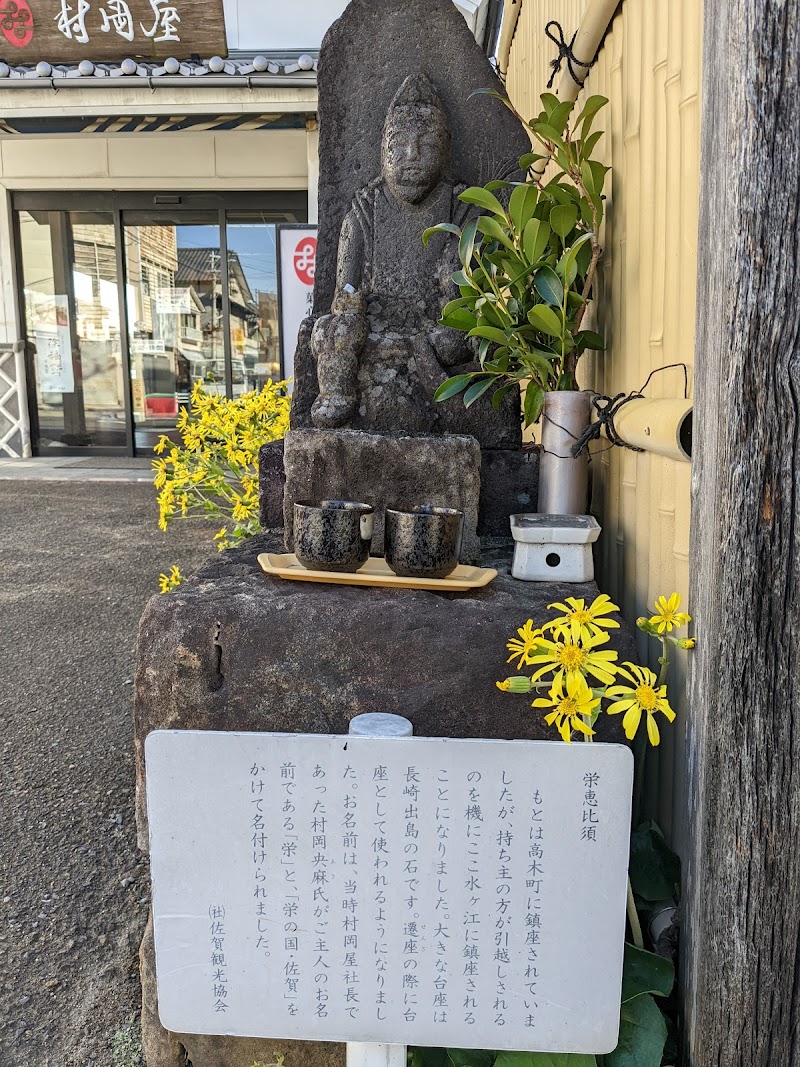 村岡屋
栄恵比須
もとは高木町に鎮座されていま
したが、持ち主の方が引越しされる
のを機にここ水ヶ江に鎮座される
ことになりました。大きな台座は
長崎出島の石です。遷座の際に台
座として使われるようになりまし
た。お名前は、当時村岡屋社長で
あった村岡央麻氏がご主人のお名
前である「栄」と、「栄の国・佐賀」を
かけて名付けられました。
㈳佐賀観光協会